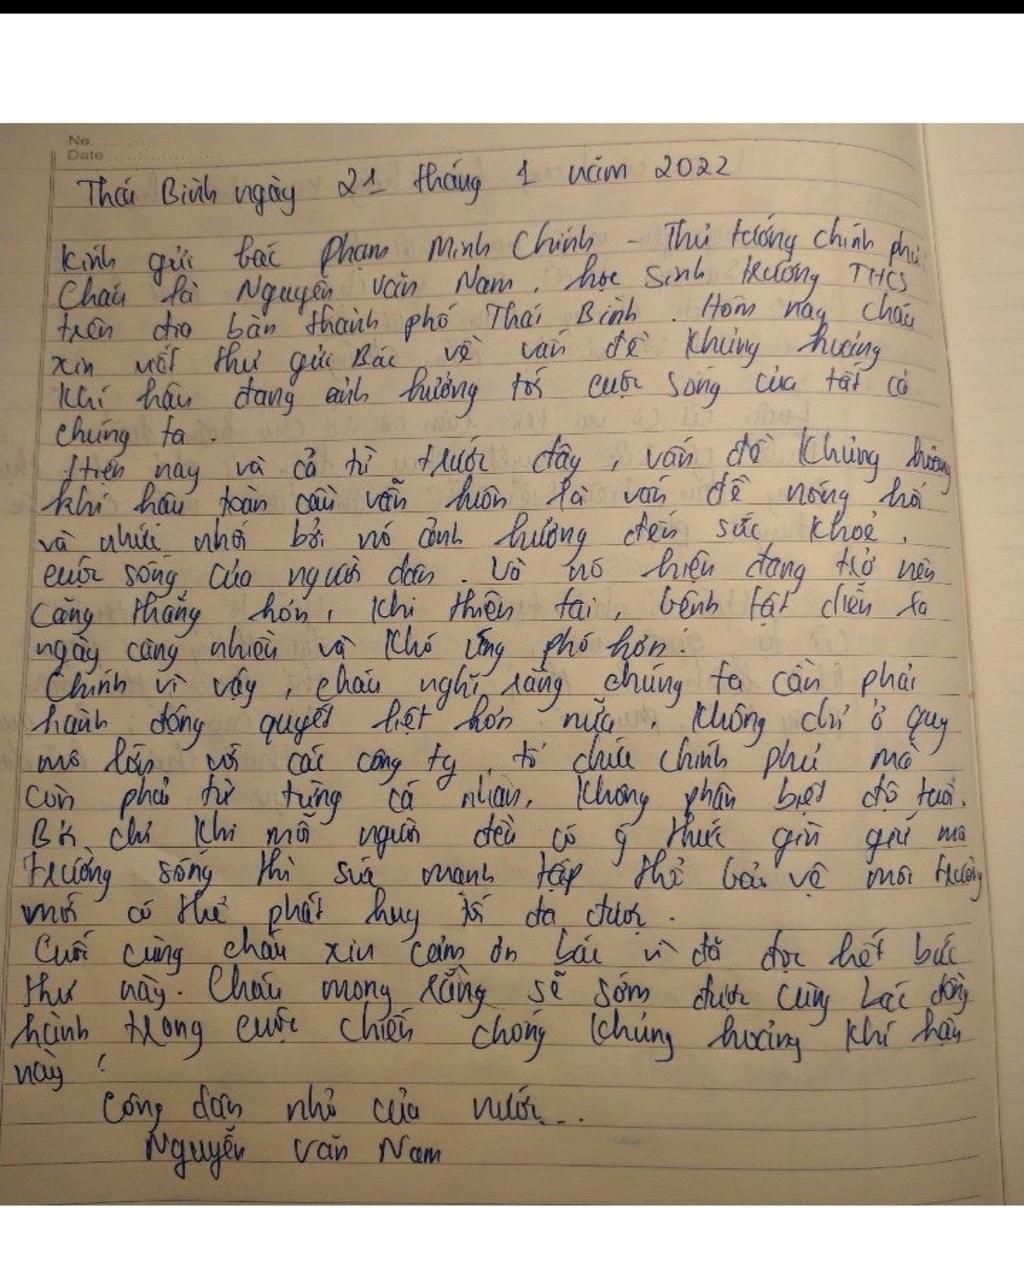 No.
Date
Thái Bình ngày 21 tháng 1 năm 2022
Kính gửi bác Phạm Minh Chính - Thủ tướng chính phủ.
Cháu là Nguyễn Văn Nam, học sinh trường THCS
trên địa bàn thành phố Thái Bình. Hôm nay cháu
xin viết thư gửi Bác về vấn đề khủng hoảng
khí hậu đang ảnh hưởng tới cuộc sống của tất cả
chúng ta.
Hiện nay và cả từ trước đây, vấn đề khủng hoảng
khí hậu toàn cầu vẫn luôn là vấn đề nóng hổi
và nhức nhối bởi nó ảnh hưởng đến sức khoẻ,
cuộc sống của người dân. Và nó hiện đang trở nên
căng thẳng hơn, khi thiên tai, bệnh tật diễn ra
ngày càng nhiều và khó ứng phó hơn.
Chính vì vậy, cháu nghĩ rằng chúng ta cần phải
hành động quyết liệt hơn nữa, không chỉ ở quy
mô lớn với các công ty, tổ chức chính phủ mà
còn phải từ từng cá nhân, không phân biệt độ tuổi.
Bởi chỉ khi mỗi người đều có ý thức gìn giữ môi
trường sống thì sức mạnh tập thể bảo vệ môi trường
mới có thể phát huy tối đa được.
Cuối cùng cháu xin cảm ơn bác vì đã đọc hết bức
thư này. Cháu mong rằng sẽ sớm được cùng bác đồng
hành trong cuộc chiến chống khủng hoảng khí hậu
này!
Công dân nhỏ của nước...
Nguyễn Văn Nam